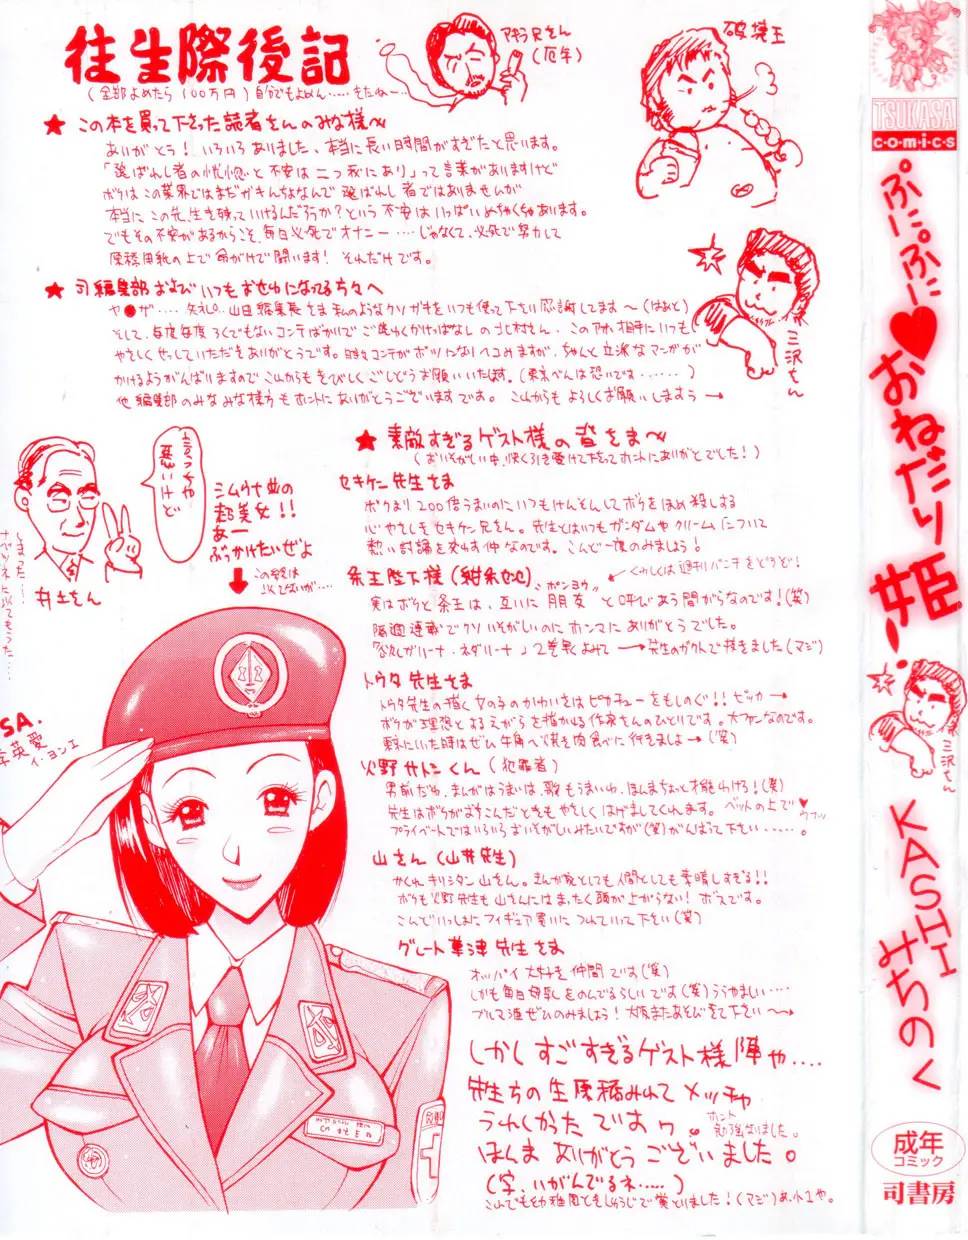 往生際後記
(全部よめたら100万円)自分でもよめん……きたねー…
アキラ兄さん
(厄年)
破壊王
★ この本を買って下さった読者さんのみな様へ
ありがとう! いろいろありました、本当に長い時間がすぎたと思います。
「選ばれし者の恍惚と不安は二つ我にあり」って言葉がありますけど
ボクはこの業界ではまだガキんちょなんで選ばれし者ではありませんが
本当にこの先、生き残っていけるんだろうか?という不安はいっぱいめちゃくちゃあります。
でもその不安があるからこそ、毎日必死でオナニー……じゃなくて、必死で努力して
原稿用紙の上で命がけで闘います! それだけです。
★ 司編集部およびいつもおせわになってる方々へ
ヤ●ザ…… 失礼。山田編集長さま まんのようなクソガキをいつも使って下さい感謝してます〜(はあと)
そして、毎度毎度ろくでもないコンテばかりでご迷わくかけっぱなしの 村さん、このアホ相手にいつも
やさしくせっしていただきありがとうです。時々コンテがボツになりヘコみますが、ちゃんと立派なマンガが
かけるようがんばりますのでこれからもきびしくごしどうお願いいたします。(東京べんは恐いです……)
他編集部のみなみな様方もホントにありがとうございますです。 これからもよろしくお願いしますう→
三沢さん
★ 素敵すぎるゲスト様の皆さま〜
(おいそがしい中、快く引き受けて下さってホントにありがとでした!)
セキケン先生さま
ボクより200倍うまいのにいつもけんそんしてボクをほめ殺しする
心やさしきセキケン兄さん。先生とはいつもガンダムやクリームについて
熱い討論を交わす仲なのです。こんど一度のみましょう!
条王陛下様(紺条せむ)
くわしくは週刊パンチをどうぞ!
ポンヨウ
実はボクと条王は、互いに朋友と呼びあう間がらなのです!(笑)
隔週連載でクソいそがしいのにホンマにありがとうでした。
「欲しがリーナ・ネダリーナ」2巻早くよみて→先生のガクトで抜きました(マジ)
トウタ先生さま
トウタ先生の描く女の子のかわいさはピカチューをもしのぐ!!ピッカ→
ボクが理想とするえがらを描かれる作家さんのひとりです。大ファンなのです。
東京にいた時はぜひ牛角へ焼き肉食べに行きましょ→(笑)
火野サトシくん(犯罪者)
男前だわ、まんがはうまいは、歌もうまいわ、ほんまちょっと才能わけろ!(笑)
先生はボクがおちこんだときもやさしくはげましてくれます。ベットの上で♥
ウフッ
プライベートではいろいろおいそがしいみたいですが(笑)がんばって下さい……。
山さん(山井先生)
かくれキリシタン山さん。まんが家としても人間としても素晴しすぎる!!
ボクも火野先生も山さんにはまったく頭が上がらない!ボスです。
こんどいっしょにフィギュア買いにつれていって下さい(笑)
グレート草津先生さま
オッパイ大好き仲間です(笑)
しかも毎日母乳をのんでるらしいです(笑)うらやましい……
ブルマ酒ぜひのみましょう!大阪またあそびきて下さい〜→
しかしすごすぎるゲスト様陣や….
先生ちの生原稿みれてメッチャ
うれしかったですョ。
ホント
勉強なりました。
ほんまありがとうございました。
(字、いがんでるネ……)
これでも幼稚園ときしゅうじで賞とりました!(マジ)あ、小1や。
言っちゃ
悪いけど
井土さん
シムラ女の
超美女!!
あー
ぶっかけたいぜよ
SA.
李英愛
イ・ヨンエ
TSUKASA
comics
ぷにぷに♥おねだり姫!
三沢さん
KASHI
みちのく
成年
コミック
司書房